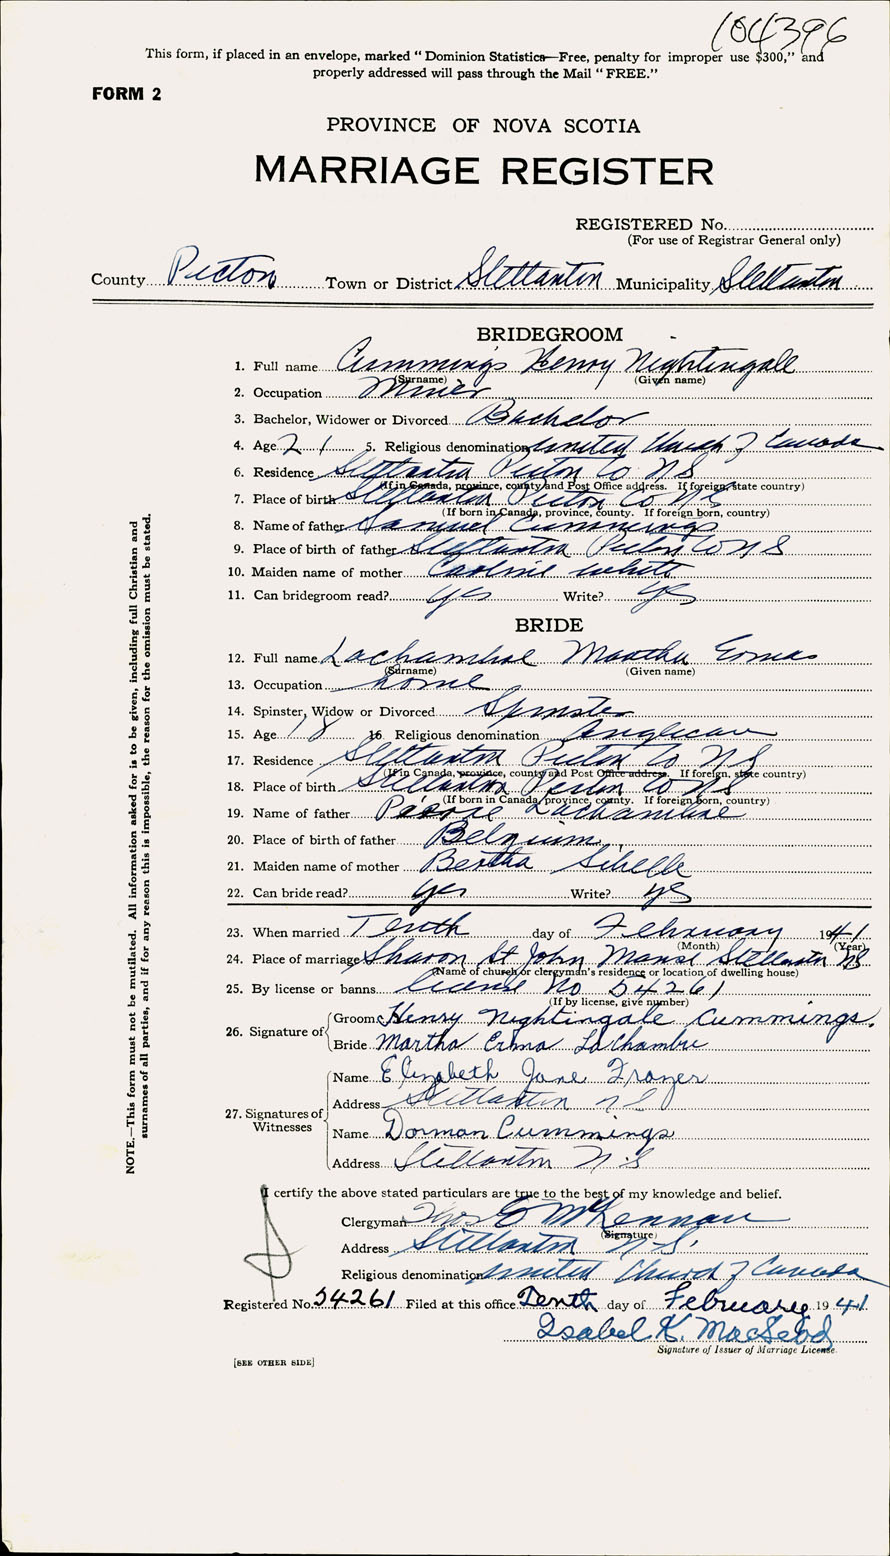 104396
This form, if placed in an envelope, marked “ Dominion Statistics—Free, penalty for improper use $300,” and
properly addressed will pass through the Mail “ FREE.”
FORM 2
PROVINCE OF NOVA SCOTIA
MARRIAGE REGISTER
REGISTERED No.
(For use of Registrar General only)
County Pictou Town or District Stellarton Municipality Stellarton
BRIDEGROOM
1. Full name Cummings Henry Nightingale
(Surname) (Given name)
2. Occupation Miner
3. Bachelor, Widower or Divorced Bachelor
4. Age 21 5. Religious denomination United Church of Canada
6. Residence Stellarton Pictou Co NS
(If in Canada, province, county and Post Office address. If foreign, state country)
7. Place of birth Stellarton Pictou Co NS
(If born in Canada, province, county. If foreign born, country)
8. Name of father Samuel Cummings
9. Place of birth of father Stellarton Pictou Co NS
10. Maiden name of mother Caroline White
11. Can bridegroom read? Yes Write? Yes
BRIDE
12. Full name Lachambre Martha Erma
(Surname) (Given name)
13. Occupation home
14. Spinster, Widow or Divorced Spinster
15. Age 18 16. Religious denomination Anglican
17. Residence Stellarton Pictou Co NS
(If in Canada, province, county and Post Office address. If foreign, state country)
18. Place of birth Stellarton Pictou Co NS
(If born in Canada, province, county. If foreign born, country)
19. Name of father Lachambre
20. Place of birth of father Belgium
21. Maiden name of mother Bertha
22. Can bride read? Yes Write? Yes
23. When married Tenth day of February 1941
(Month) (Year)
24. Place of marriage Sharon St John Manse Stellarton NS
(Name of church or clergyman's residence or location of dwelling house)
25. By license or banns License No 54261
(If by license, give number)
26. Signature of Groom Henry Nightingale Cummings.
Bride Martha Erma LaChambre
27. Signatures of Witnesses
Name Elizabeth Jane Frazer
Address Stellarton NS
Name Dorman Cummings
Address Stellarton N.S
I certify the above stated particulars are true to the best of my knowledge and belief.
Clergyman McKennan
(Signature)
Address Stellarton N.S.
Religious denomination United Church of Canada
Registered No. 54261 Filed at this office Tenth day of February 1941
Isabel K. MacLeod
Signature of Issuer of Marriage License.
[SEE OTHER SIDE]
NOTE.—This form must not be mutilated. All information asked for is to be given, including full Christian and
surnames of all parties, and if for any reason this is impossible, the reason for the omission must be stated.